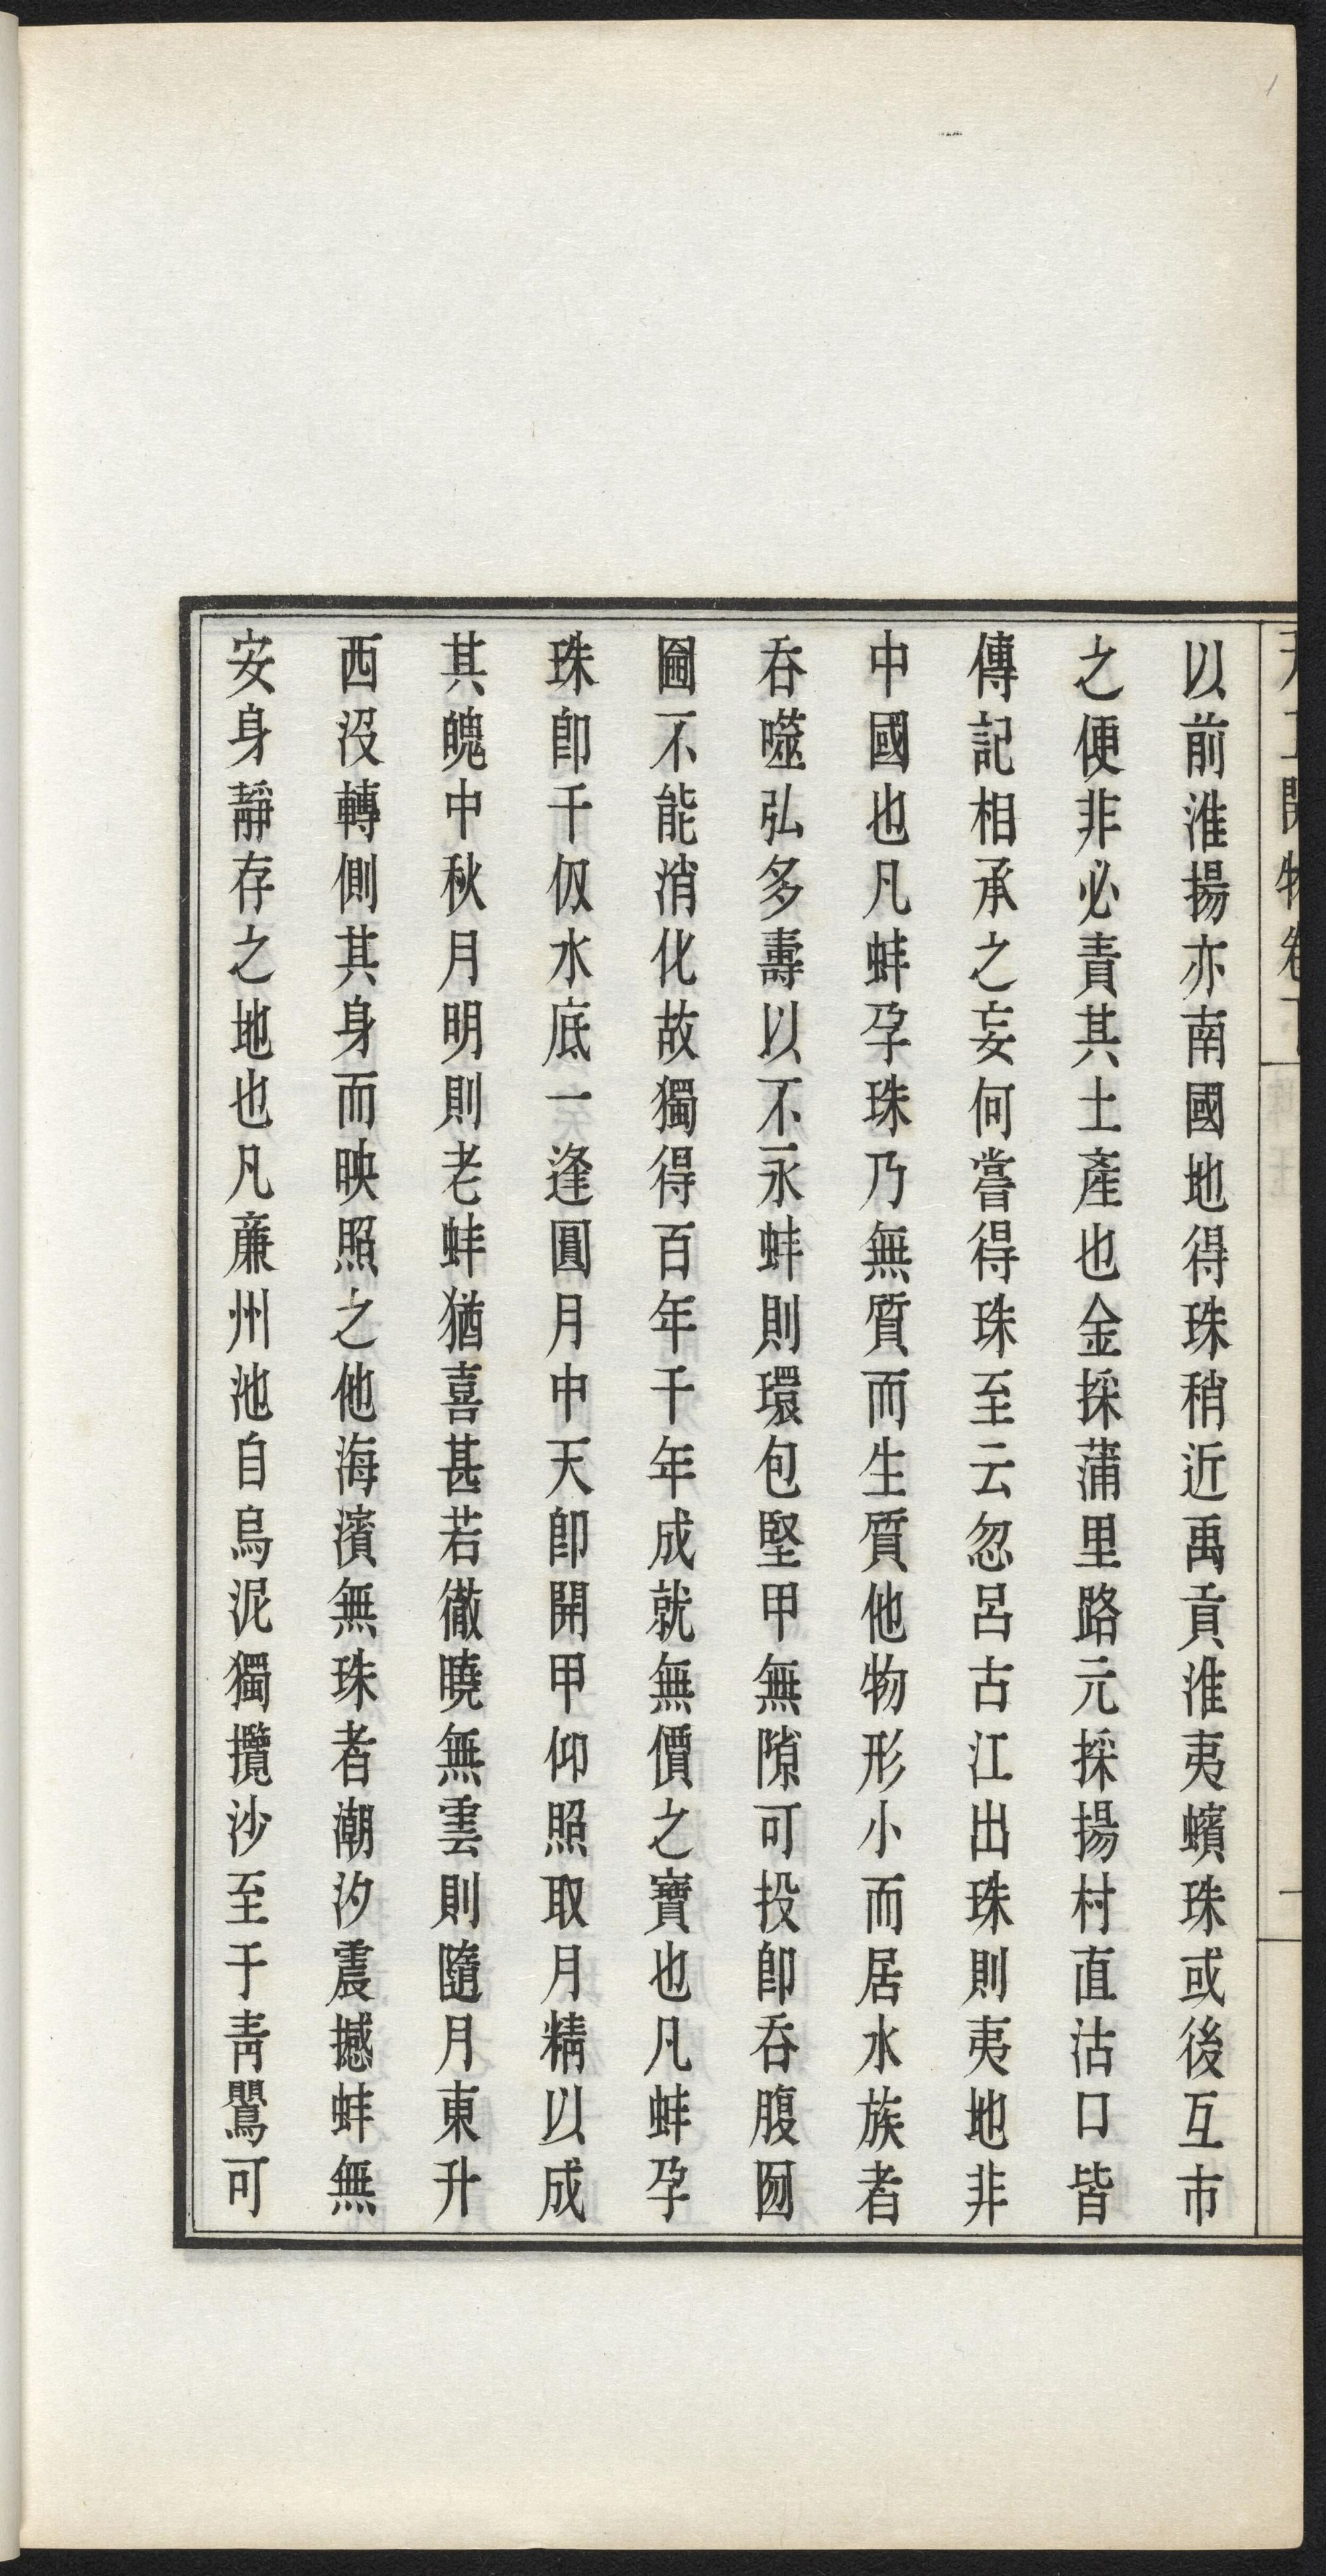 天工開物卷下
以前淮揚亦南國地得珠稍近禹貢淮夷蠙珠或後互市
之便非必責其土產也金採蒲里路元採揚村直沽口皆
傳記相承之妄何嘗得珠至云忽呂古江出珠則夷地非
中國也凡蚌孕珠乃無質而生質他物形小而居水族者
吞噬弘多壽以不永蚌則環包堅甲無隙可投卽吞腹囫
圇不能消化故獨得百年千年成就無價之寶也凡蚌孕
珠卽千仭水底一逢圓月中天卽開甲仰照取月精以成
其魄中秋月明則老蚌猶喜甚若徹曉無雲則隨月東升
西沒轉側其身而映照之他海濱無珠者潮汐震撼蚌無
安身靜存之地也凡廉州池自烏泥獨攬沙至于靑鸎可